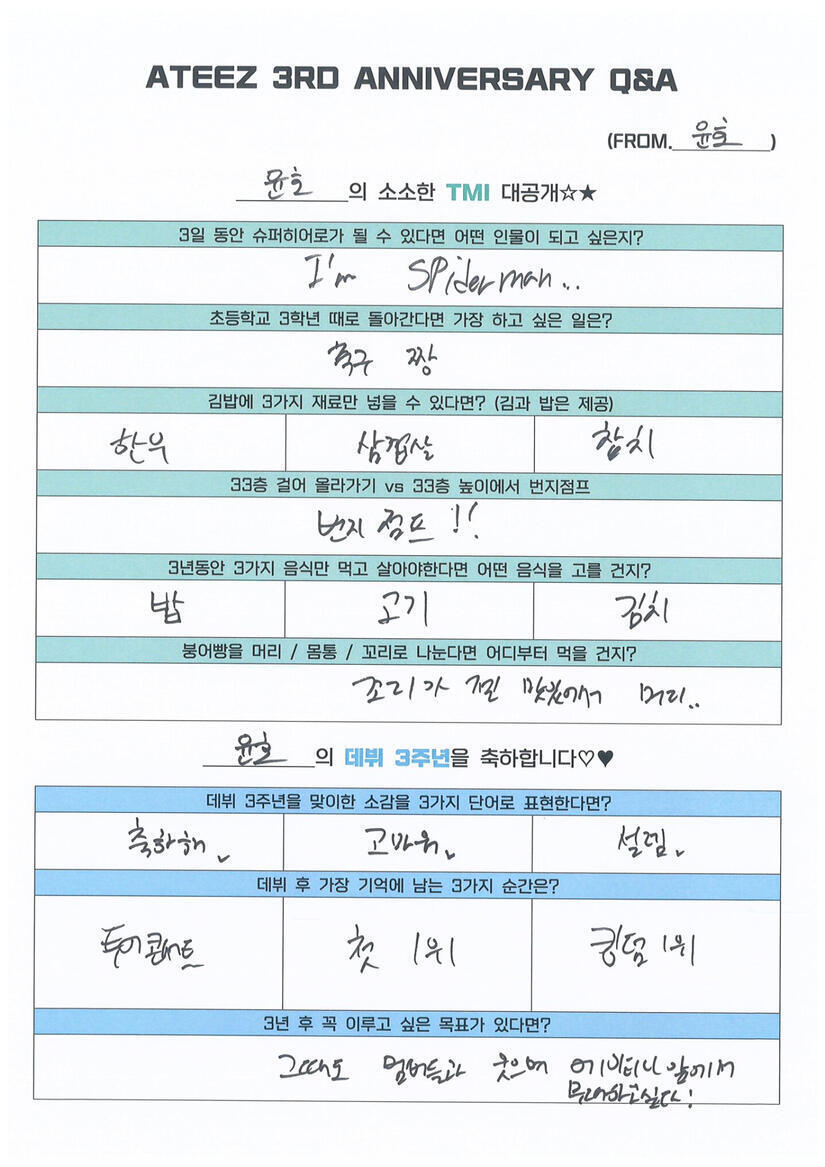 ATEEZ 3RD ANNIVERSARY Q&A
(FROM. 윤호 )
윤호 의 소소한 TMI 대공개☆★
3일 동안 슈퍼히어로가 될 수 있다면 어떤 인물이 되고 싶은지?
I'm SPiderman..
초등학교 3학년 때로 돌아간다면 가장 하고 싶은 일은?
축구 짱
김밥에 3가지 재료만 넣을 수 있다면? (김과 밥은 제공)
한우 삼겹살 참치
33층 걸어 올라가기 vs 33층 높이에서 번지점프
번지 점프 !!
3년동안 3가지 음식만 먹고 살아야한다면 어떤 음식을 고를 건지?
밥 고기 김치
붕어빵을 머리 / 몸통 / 꼬리로 나눈다면 어디부터 먹을 건지?
꼬리가 젤 맛있어서 머리..
윤호 의 데뷔 3주년을 축하합니다♡♥
데뷔 3주년을 맞이한 소감을 3가지 단어로 표현한다면?
축하해 고마워 설렘
데뷔 후 가장 기억에 남는 3가지 순간은?
투어콘서트 첫 1위 킹덤 1위
3년 후 꼭 이루고 싶은 목표가 있다면?
그때도 멤버들과 웃으며 에이티니 앞에서
무대하고싶다!